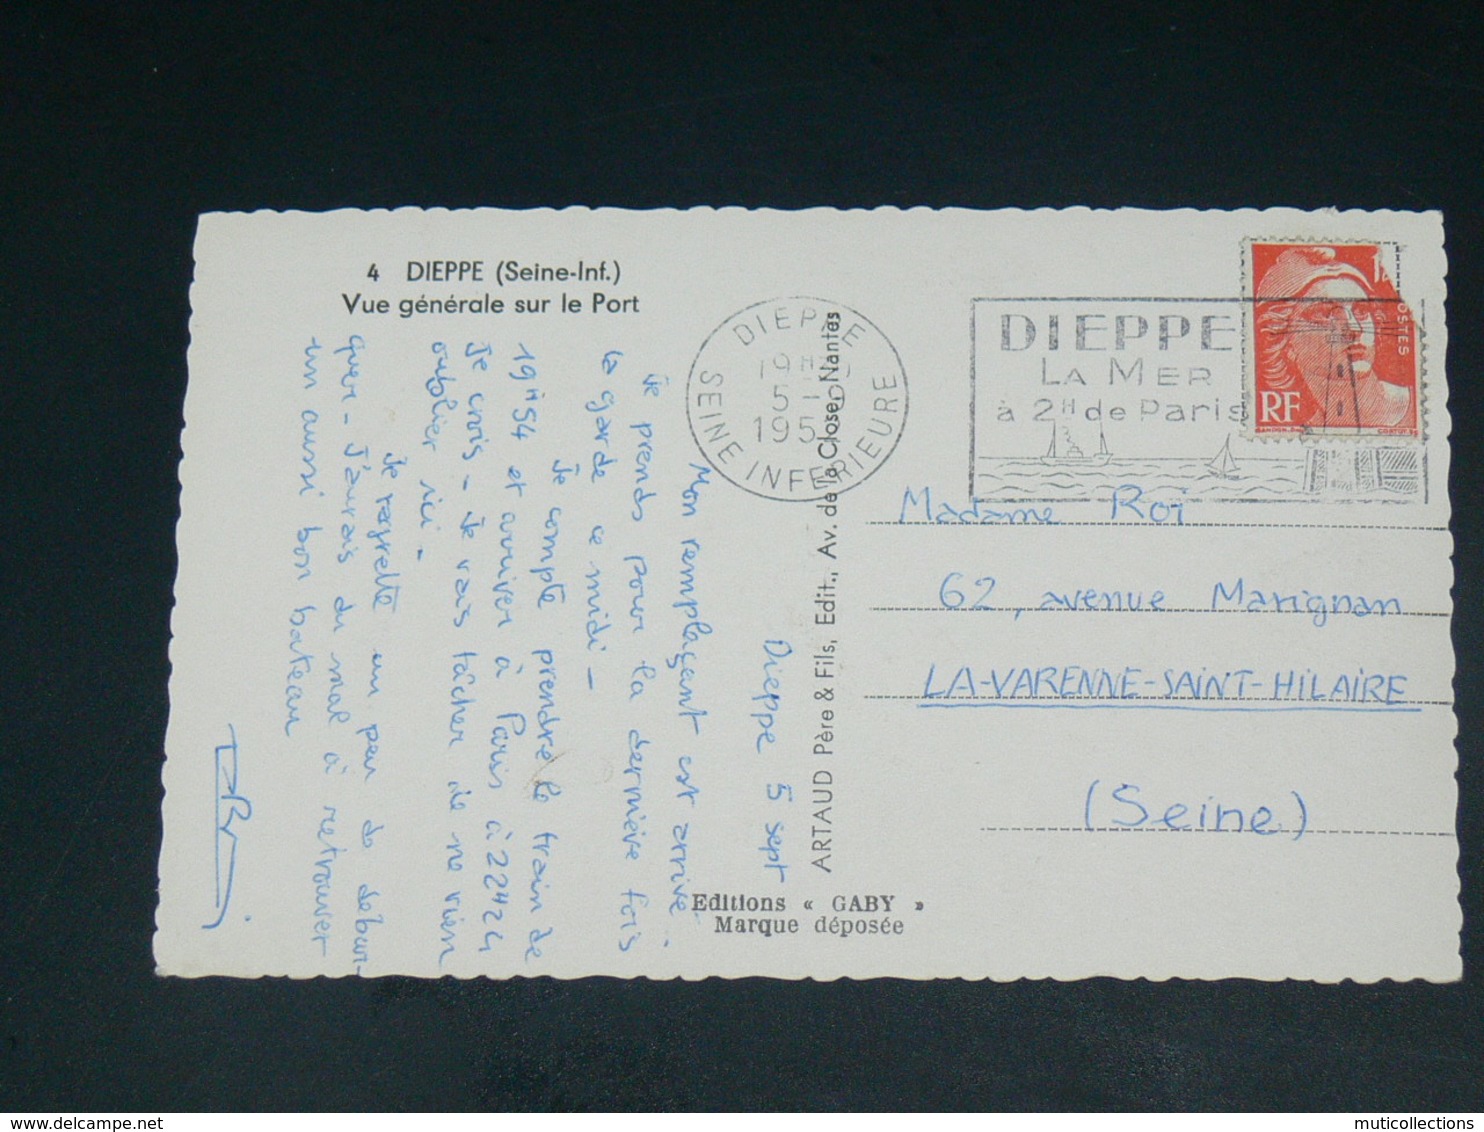 4 DIEPPE (Seine-Inf.)
Vue générale sur le Port
Dieppe 5 sept
Mon remplaçant est arrivé.
Je prends pour la dernière fois
la garde ce midi -
Je compte prendre le train de
19H54 et arriver à Paris à 22H24
Je crois - Je vais tâcher de ne rien
oublier ici -
Je regrette un peu de débar-
quer - J'aurais du mal à retrouver
un aussi bon bateau
ARTAUD Père & Fils, Edit., Av. de la Close, Nantes
Editions « GABY »
Marque déposée
DIEPPE
19H
5 -
195
SEINE INFERIEURE
DIEPPE
LA MER
à 2H de Paris
POSTES
RF
GANDON
CORTOT
Madame Roi
62, avenue Marignan
LA-VARENNE-SAINT-HILAIRE
(Seine)
muticollections